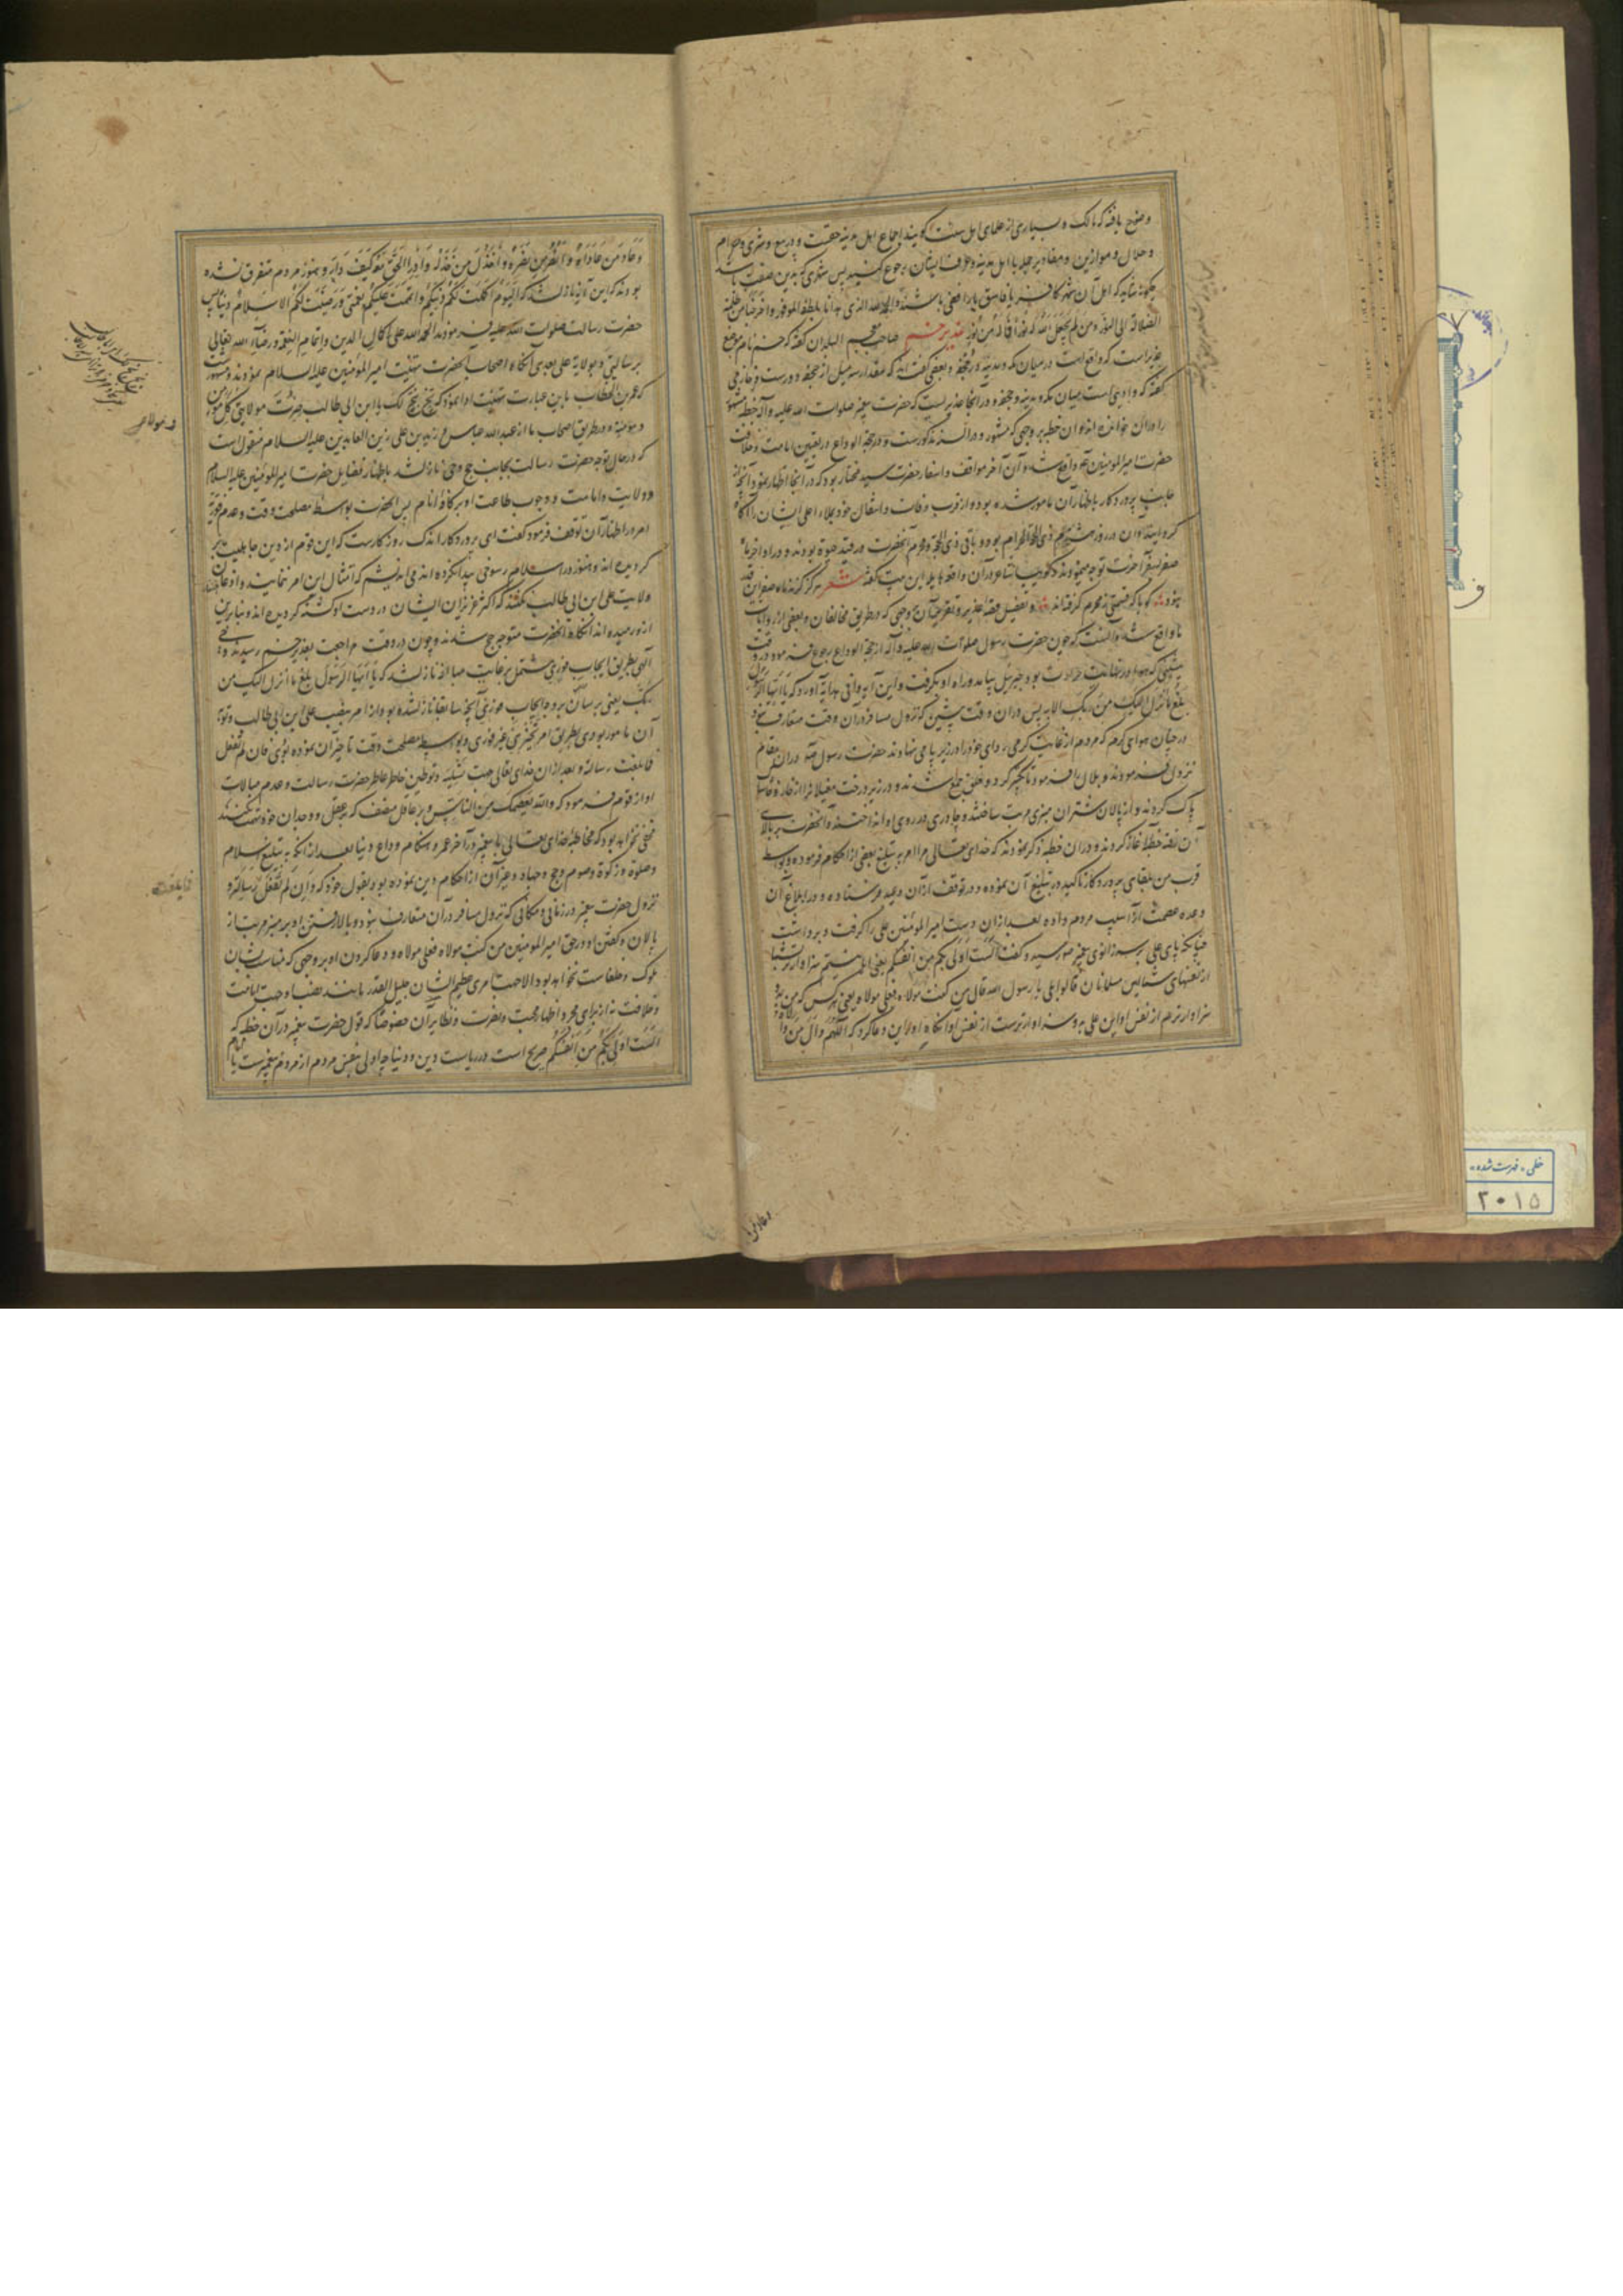 وضوح یافته که مالک و بسیاری از علمای اهل سنت گویند اجماع اهل مدینه حقست و در بیع و شری و حرام
و حلال و موازین و مقادیر جمله با اهل مدینه و عرف ایشان رجوع کنند پس شهری که بدین صفت باشد
چگونه شاید که اهل آن شهر کافر یا فاسق یا رافضی باشند والحمد لله الذی هدانا بلطفه الموفور و اخرجنا من ظلمة
الضلالة الی النور و من لم یجعل الله له نورا فما له من نور غدیر خم صاحب معجم البلدان گفته که خم نام موضع
غدیر است که واقع است در میان مکه و مدینه در جحفه و بعضی گفته‌اند که مقدار سه میل از جحفه دورست و خارجی
گفته که وادئی است میان مکه و مدینه و جحفه و در آنجا غدیریست که حضرت پیغمبر صلوات الله علیه و آله خطبه مشهور
را در آن خوانده‌اند و آن خطبه بر وجهی که مشهور و در السنه مذکورست و در حجة الوداع در تعیین امامت و خلافت
حضرت امیرالمؤمنین واقع شد و آن آخر مواقف و اسفار حضرت سید مختار بود که در آنجا اظهار نمود آنچه از
جانب پروردگار باظهار آن مامور شده بود و از قرب وفات و انتقال خود بملاء اعلی ایشان را آگاه
گردانید و آن در روز هشتم ذی الحجة الحرام بود و باقی ذی الحجه و محرم آنحضرت در قید حیوة بودند و در اواخر ماه
صفر بسفر آخرت توجه نمودند
بخود گویا که قسمتی ز محرم گرفته‌اند و تفصیل قصه غدیر و تقریب آن بوجهی که در طریق مخالفان و بعضی از روایات
ما واقع شده آنست که چون حضرت رسول صلوات الله علیه و آله از حجة الوداع رجوع فرمود در وقت
پیشین که هوا در نهایت حرارت بود جبرئیل بیامد و راه او بگرفت و این آیه وافی هدایه آورد که یا ایها الرسول
بلغ ما انزل الیک من ربک الایه پس در آن وقت پیشین که نزول مسافر در آن وقت متعارف نبود
در چنان هوای گرم که مردم از غایت گرمی ردای خود را در زیر پا می نهادند حضرت رسول در آن مقام
نزول فرمودند و بلال را فرمود تا تکبیر کرد و خلق جمع شدند و در زیر درخت مغیلان را از خار و خاشاک
پاک کردند و از پالان شتران منبری مرتب ساختند و چادری در روی او انداختند و آنحضرت بر بالای
آن رفته خطبه آغاز کردند و در آن خطبه ذکر نمودند که خدای تعالی مرا امر به تبلیغ بعضی از احکام فرموده و بواسطه
قرب من بلقای پروردگار تاکید در تبلیغ آن نموده و در توقف از آن وعید فرستاده و در ابلاغ آن
وعده عصمت از آسیب مردم داده بعد از آن دست امیر المؤمنین علی را گرفت و برداشت
چنانکه پای علی بر سر زانوی پیغمبر میرسید و گفت الست اولی بکم من انفسکم یعنی آیا نیستم سزاوارتر بشما
از نفسهای شما پس مسلمانان قالوا بلی یا رسول الله قال من کنت مولاه فعلی مولاه یعنی هر کس که من بدو
سزاوارترم از نفس او این علی بدو سزاوارترست از نفس او آنگاه او را این دعا کرد که اللهم وال من والاه
و عاد من
وَعَادِ مَن عَادَاهُ وَانْصُر مَن نَصَرَهُ وَاخْذُل مَن خَذَلَه وَاَدِرِ الحَقَّ مَعَه کَیفَ دَارَ و هنوز مردم متفرق نشده
بودند که این آیه نازل شد که الیَومَ اَکمَلتُ لَکُم دینَکُم وَاَتمَمتُ عَلَیکُم نِعمَتی وَرَضِیتُ لَکُم الاسلامَ دینا پس
حضرت رسالت صلوات الله علیه فرمودند الحمد لله علی اکمال الدین و اتمام النعمة و رضاء الله تعالی
برسالتی و بولایة علی بعدی آنگاه اصحاب آنحضرت تهنیت امیر المؤمنین علیه السلام نمودند
که عمر بن الخطاب باین عبارت تهنیت ادا نمود که بخ بخ لک یا ابن ابی طالب صرت مولای
و مؤمنة و در طریق اصحاب ما از عبدالله عباس و زید بن علی زین العابدین علیه السلام منقول است
که در حال توجه حضرت رسالت بجانب حج وحی نازل شد باظهار فضایل حضرت امیر المؤمنین علیه السلام
و ولایت و امامت و وجوب طاعت او بر کافه انام پس آنحضرت بواسطه مصلحت وقت و عدم فوریة
امر در اظهار آن توقف فرمود گفت ای پروردگار اندک روزگارست که این قوم از دین جاهلیت بر
گردیده‌اند و هنوز در اسلام رسوخی پیدا نکرده‌اند می اندیشم که امتثال این امر ننمایند و اذعان
ولایت علی ابن ابی طالب نکنند که اکثر عزیزان ایشان در دست او کشته گردیده‌اند و بنابراین
ازو رمیده‌اند آنگاه آنحضرت متوجه حج شدند و چون در وقت مراجعت بغدیر خم رسیدند
الهی بطریق ایجاب فوری مشتمل بر غایت مبالغه نازل شد که یا ایها الرسول بلغ ما انزل الیک من
ربک یعنی برسان بر وجه ایجاب فوری آنچه سابقا نازل شده بود از امر بنصب علی ابن ابی طالب و تو
آن مامور بودی بطریق امر تخییری غیر فوری و بواسطه مصلحت وقت تاخیر آن نموده بودی فان لم تفعل
فما بلغت رسالته و بعد از آن خدای تعالی جهت تسلیه و توطین خاطر عاطر حضرت رسالت و عدم مبالات
او از قوم فرمود که والله یعصمک من الناس و بر عاقل منصف که بعقل و وجدان خود
مخفی نخواهد بود که مخاطبه خدای تعالی با پیغمبر در آخر عمر و هنگام وداع دنیا بعد از آنکه به تبلیغ اسلام
و صلوة و زکوة و صوم و حج و جهاد و غیر آن از احکام دین نموده بود بقول خود که وان لم تفعل فما بلغت رسالته و
نزول حضرت پیغمبر در زمانی و مکانی که نزول مسافر در آن متعارف نبود و بالا رفتن او بر منبر مرتب از
پالان و گفتن او در حق امیر المؤمنین من کنت مولاه فعلی مولاه و دعا کردن او بر وجهی که مناسب شان
ملوک و خلفاست نخواهد بود الا جهت امری عظیم الشان جلیل القدر مانند نصب او جهت امامت
و خلافت نه از برای مجرد اظهار محبت و نصرت و نظایر آن خصوصا که قول حضرت پیغمبر در آن خطبه که
الست اولی بکم من انفسکم صریح است در ریاست دین و دنیا چه اولی بنفس مردم از مردم پیغمبرست یا امام
خطی - فهرست شده
۲۰۱۵